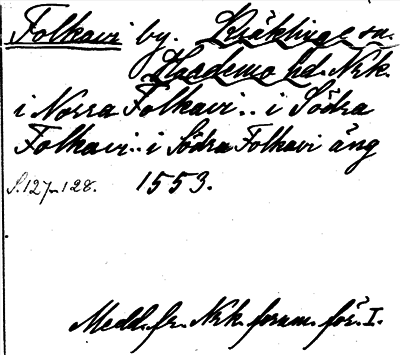 Folkavi by. Kräklinge sn.
Hardemo hd. Nrk.
i Norra Folkavi .. i Södra
Folkavi .. i Södra Folkavi äng
S. 127-128. 1553.
Medd. fr. Nrk. fornm. för. I.